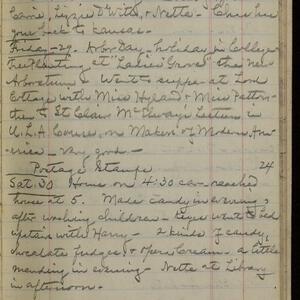 Carrie, Lizzie & Will, & Netta - Chose her
back to Kansas.
Friday - 29. Arbor Day, holiday in College
Tree Planting at "Ladies' Grove" the new
Arboretum. Went to supper at Lord
Cottage with Miss Hyland & Miss Patton -
then to St Clair McElway's Lecture in
U.L.A Course, on Makers of Modern Am-
erica - Very good -
Portage Stamps 24
Sat. 30 Home on 4:30 car - reached
house at 5. Made candy in evening,
after washing children - Keyes went to bed
upstairs with Harry - 2 kinds of candy,
chocolate fudges & Opera Cream. a little
mending in evening - Netta at Library
in afternoon.